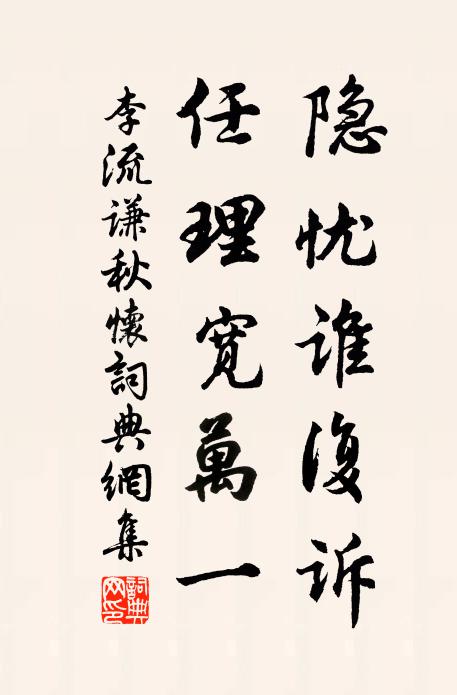 隐忧谁復诉
任理宽萬一
李流谦秋懷詞典網集
詞典网印